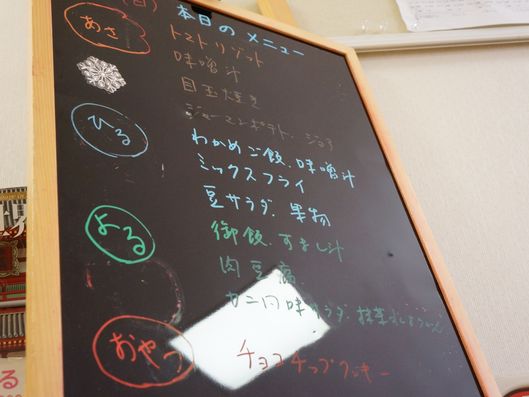 (日) 本日のメニュー
あさ トマトリゾット
味噌汁
目玉焼き
ジャーマンポテト、
ひる わかめご飯、味噌汁
ミックスフライ
豆サラダ、果物
よる 御飯、すまし汁
肉豆腐
カニ風味サラダ、
おやつ チョコチップクッキー
る